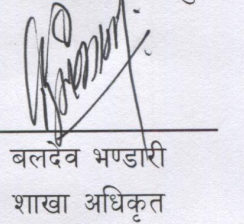 बलदेव भण्डारी
शाखा अधिकृत